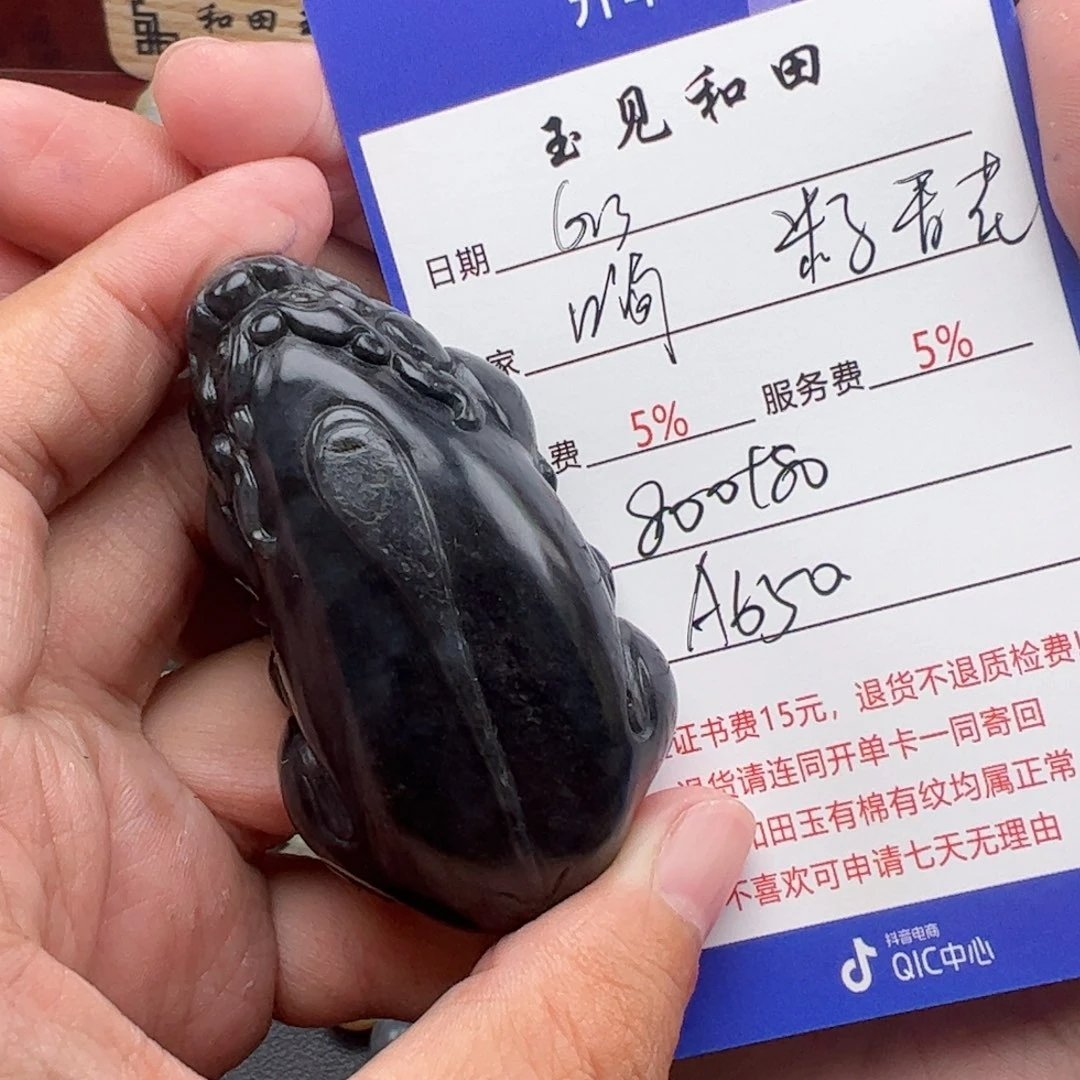 和田
玉见和田
日期 613 籽青花
家
费 5% 服务费 5%
800+80
A650
证书费15元，退货不退质检费
退货请连同开单卡一同寄回
和田玉有棉有纹均属正常
不喜欢可申请七天无理由
抖音电商
QIC中心